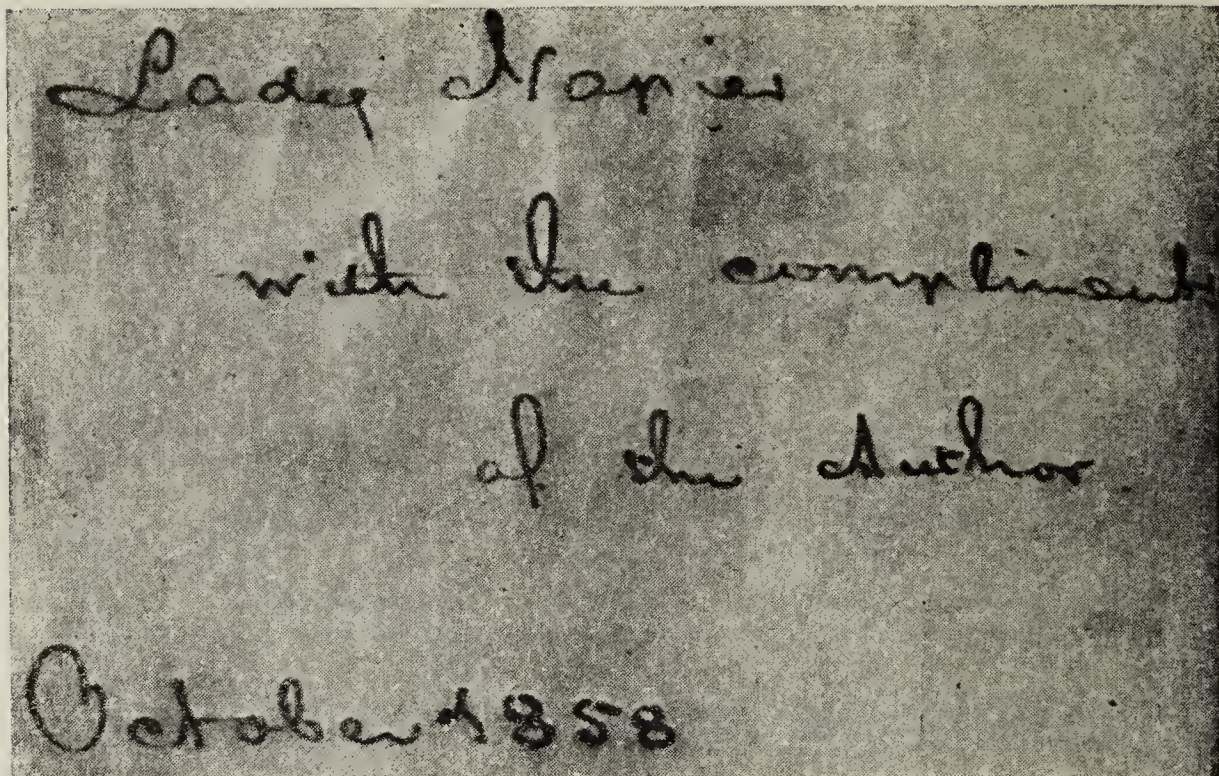 Lady Napier
with the compliments
of the Author
October 1858